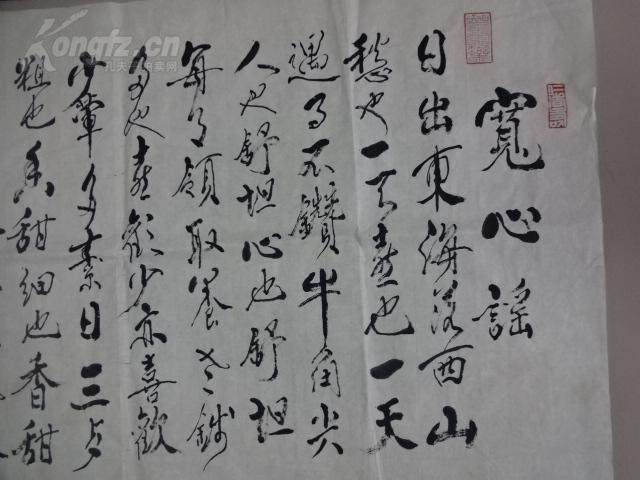 寬心謠
日出東海落西山
愁也一天喜也一天
遇事不鑽牛角尖
人也舒坦心也舒坦
每月領取養老錢
多也喜歡少亦喜歡
少葷多素日三步
粗也香甜細也香甜
Kongfz.com
孔夫子拍卖网